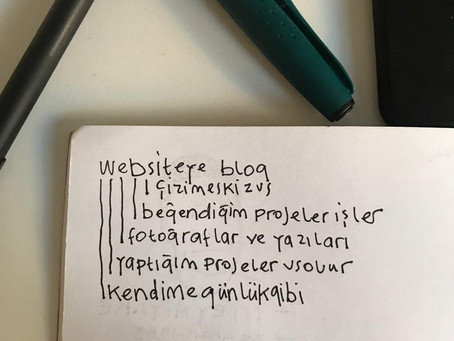 websiteye blog
çizimeskizvs
beğendiğim projeler işler
fotoğraflar ve yazıları
yaptığım projeler vsolur
kendimegünlükgibi